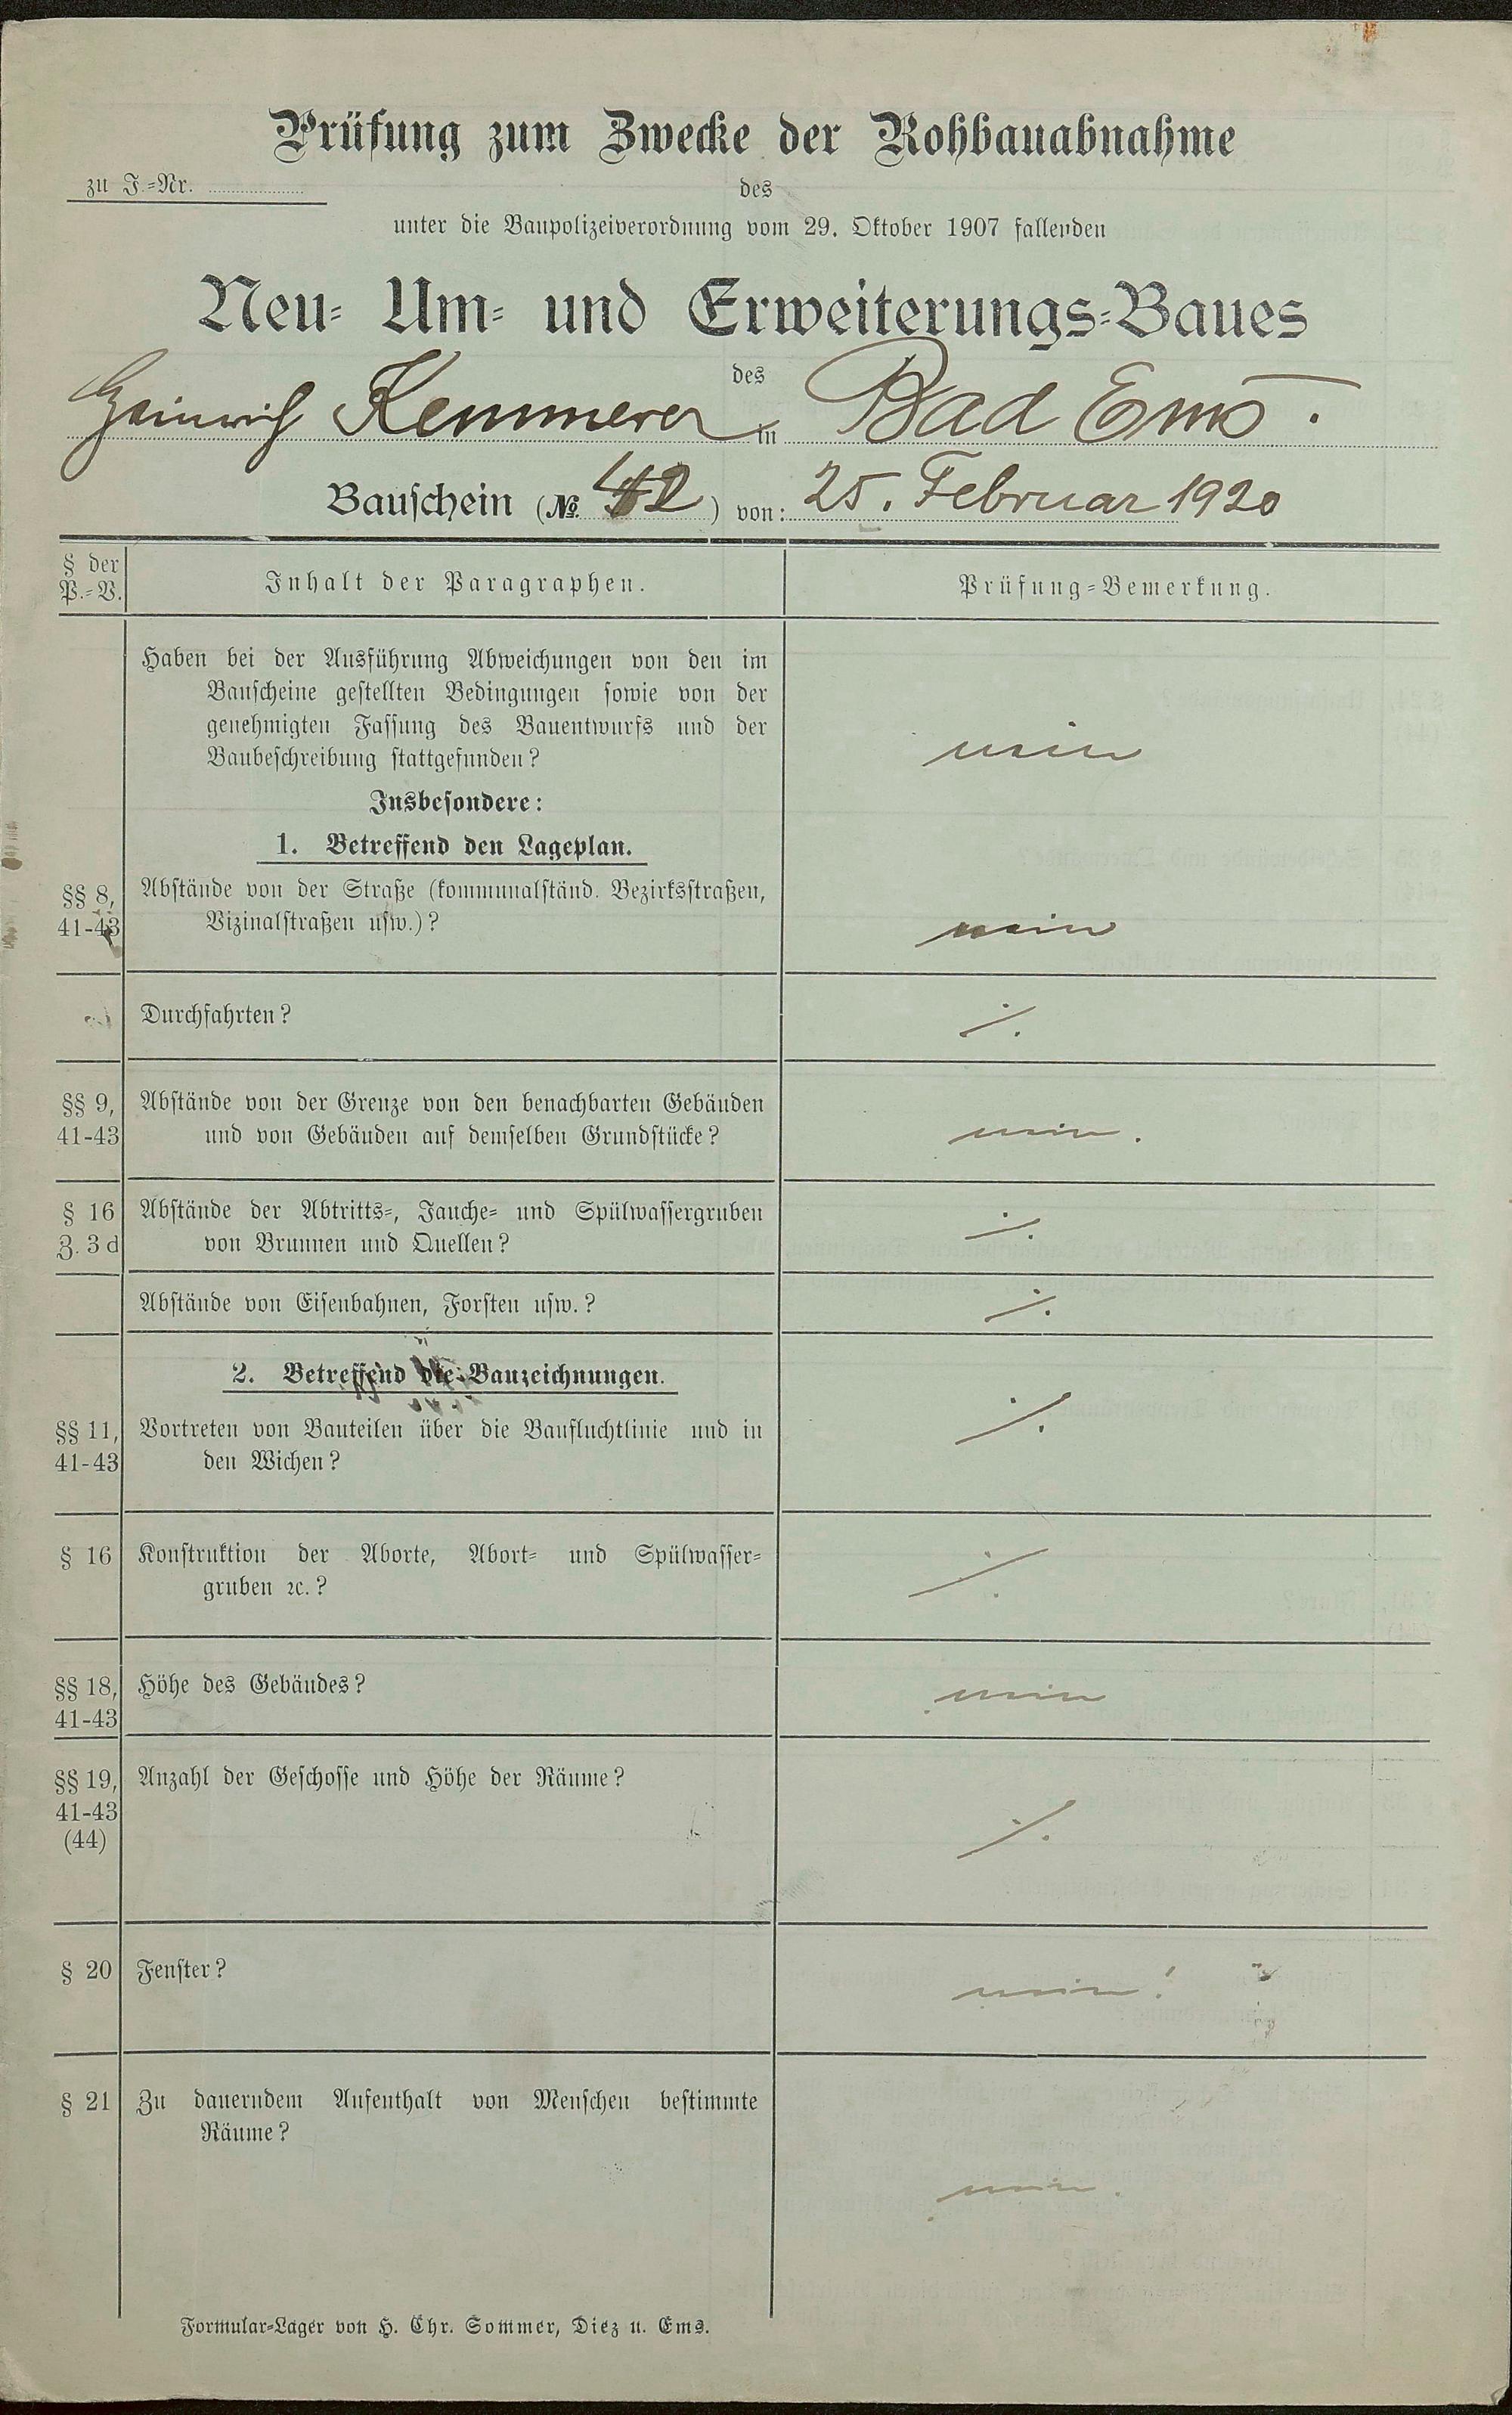 Prüfung zum Zwecke der Rohbauabnahme
zu J.-Nr.
des
unter die Baupolizeiverordnung vom 29. Oktober 1907 fallenden
Neu- Um- und Erweiterungs-Baues
des
Heinrich Kemmerer in Bad Ems.
Bauschein (No. 42) von: 25. Februar 1920
§ der P.-V.
Inhalt der Paragraphen.
Prüfung-Bemerkung.
Haben bei der Ausführung Abweichungen von den im
Bauscheine gestellten Bedingungen sowie von der
genehmigten Fassung des Bauentwurfs und der
Baubeschreibung stattgefunden?
nein
Insbesondere:
1. Betreffend den Lageplan.
§§ 8, Abstände von der Straße (kommunalständ. Bezirksstraßen,
41-43 Vizinalstraßen usw.)?
nein
Durchfahrten?
./.
§§ 9, Abstände von der Grenze von den benachbarten Gebäuden
41-43 und von Gebäuden auf demselben Grundstücke?
nein.
§ 16 Abstände der Abtritts-, Jauche- und Spülwassergruben
Z. 3 d von Brunnen und Quellen?
./.
Abstände von Eisenbahnen, Forsten usw.?
./.
2. Betreffend die Bauzeichnungen.
§§ 11, Vortreten von Bauteilen über die Baufluchtlinie und in
41-43 den Wichen?
./.
§ 16 Konstruktion der Aborte, Abort- und Spülwasser-
gruben ꝛc.?
./.
§§ 18, Höhe des Gebäudes?
41-43
nein
§§ 19, Anzahl der Geschosse und Höhe der Räume?
41-43
(44)
./.
§ 20 Fenster?
nein!
§ 21 Zu dauerndem Aufenthalt von Menschen bestimmte
Räume?
nein.
Formular-Lager von H. Chr. Sommer, Diez u. Ems.